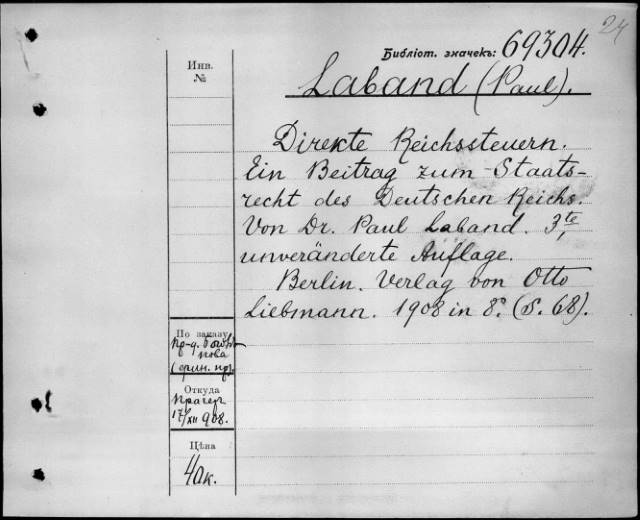 24
Библіот. значекъ: 69304.
Инв.
№
Laband (Paul).
Direkte Reichssteuern.
Ein Beitrag zum Staats-
recht des Deutschen Reichs.
Von Dr. Paul Laband. 3te
unveränderte Auflage.
Berlin. Verlag von Otto
Liebmann. 1908 in 8º. (S. 68).
По заказу
пр-д.
нова
Откуда
Прагер
17/XII 908.
Цѣна